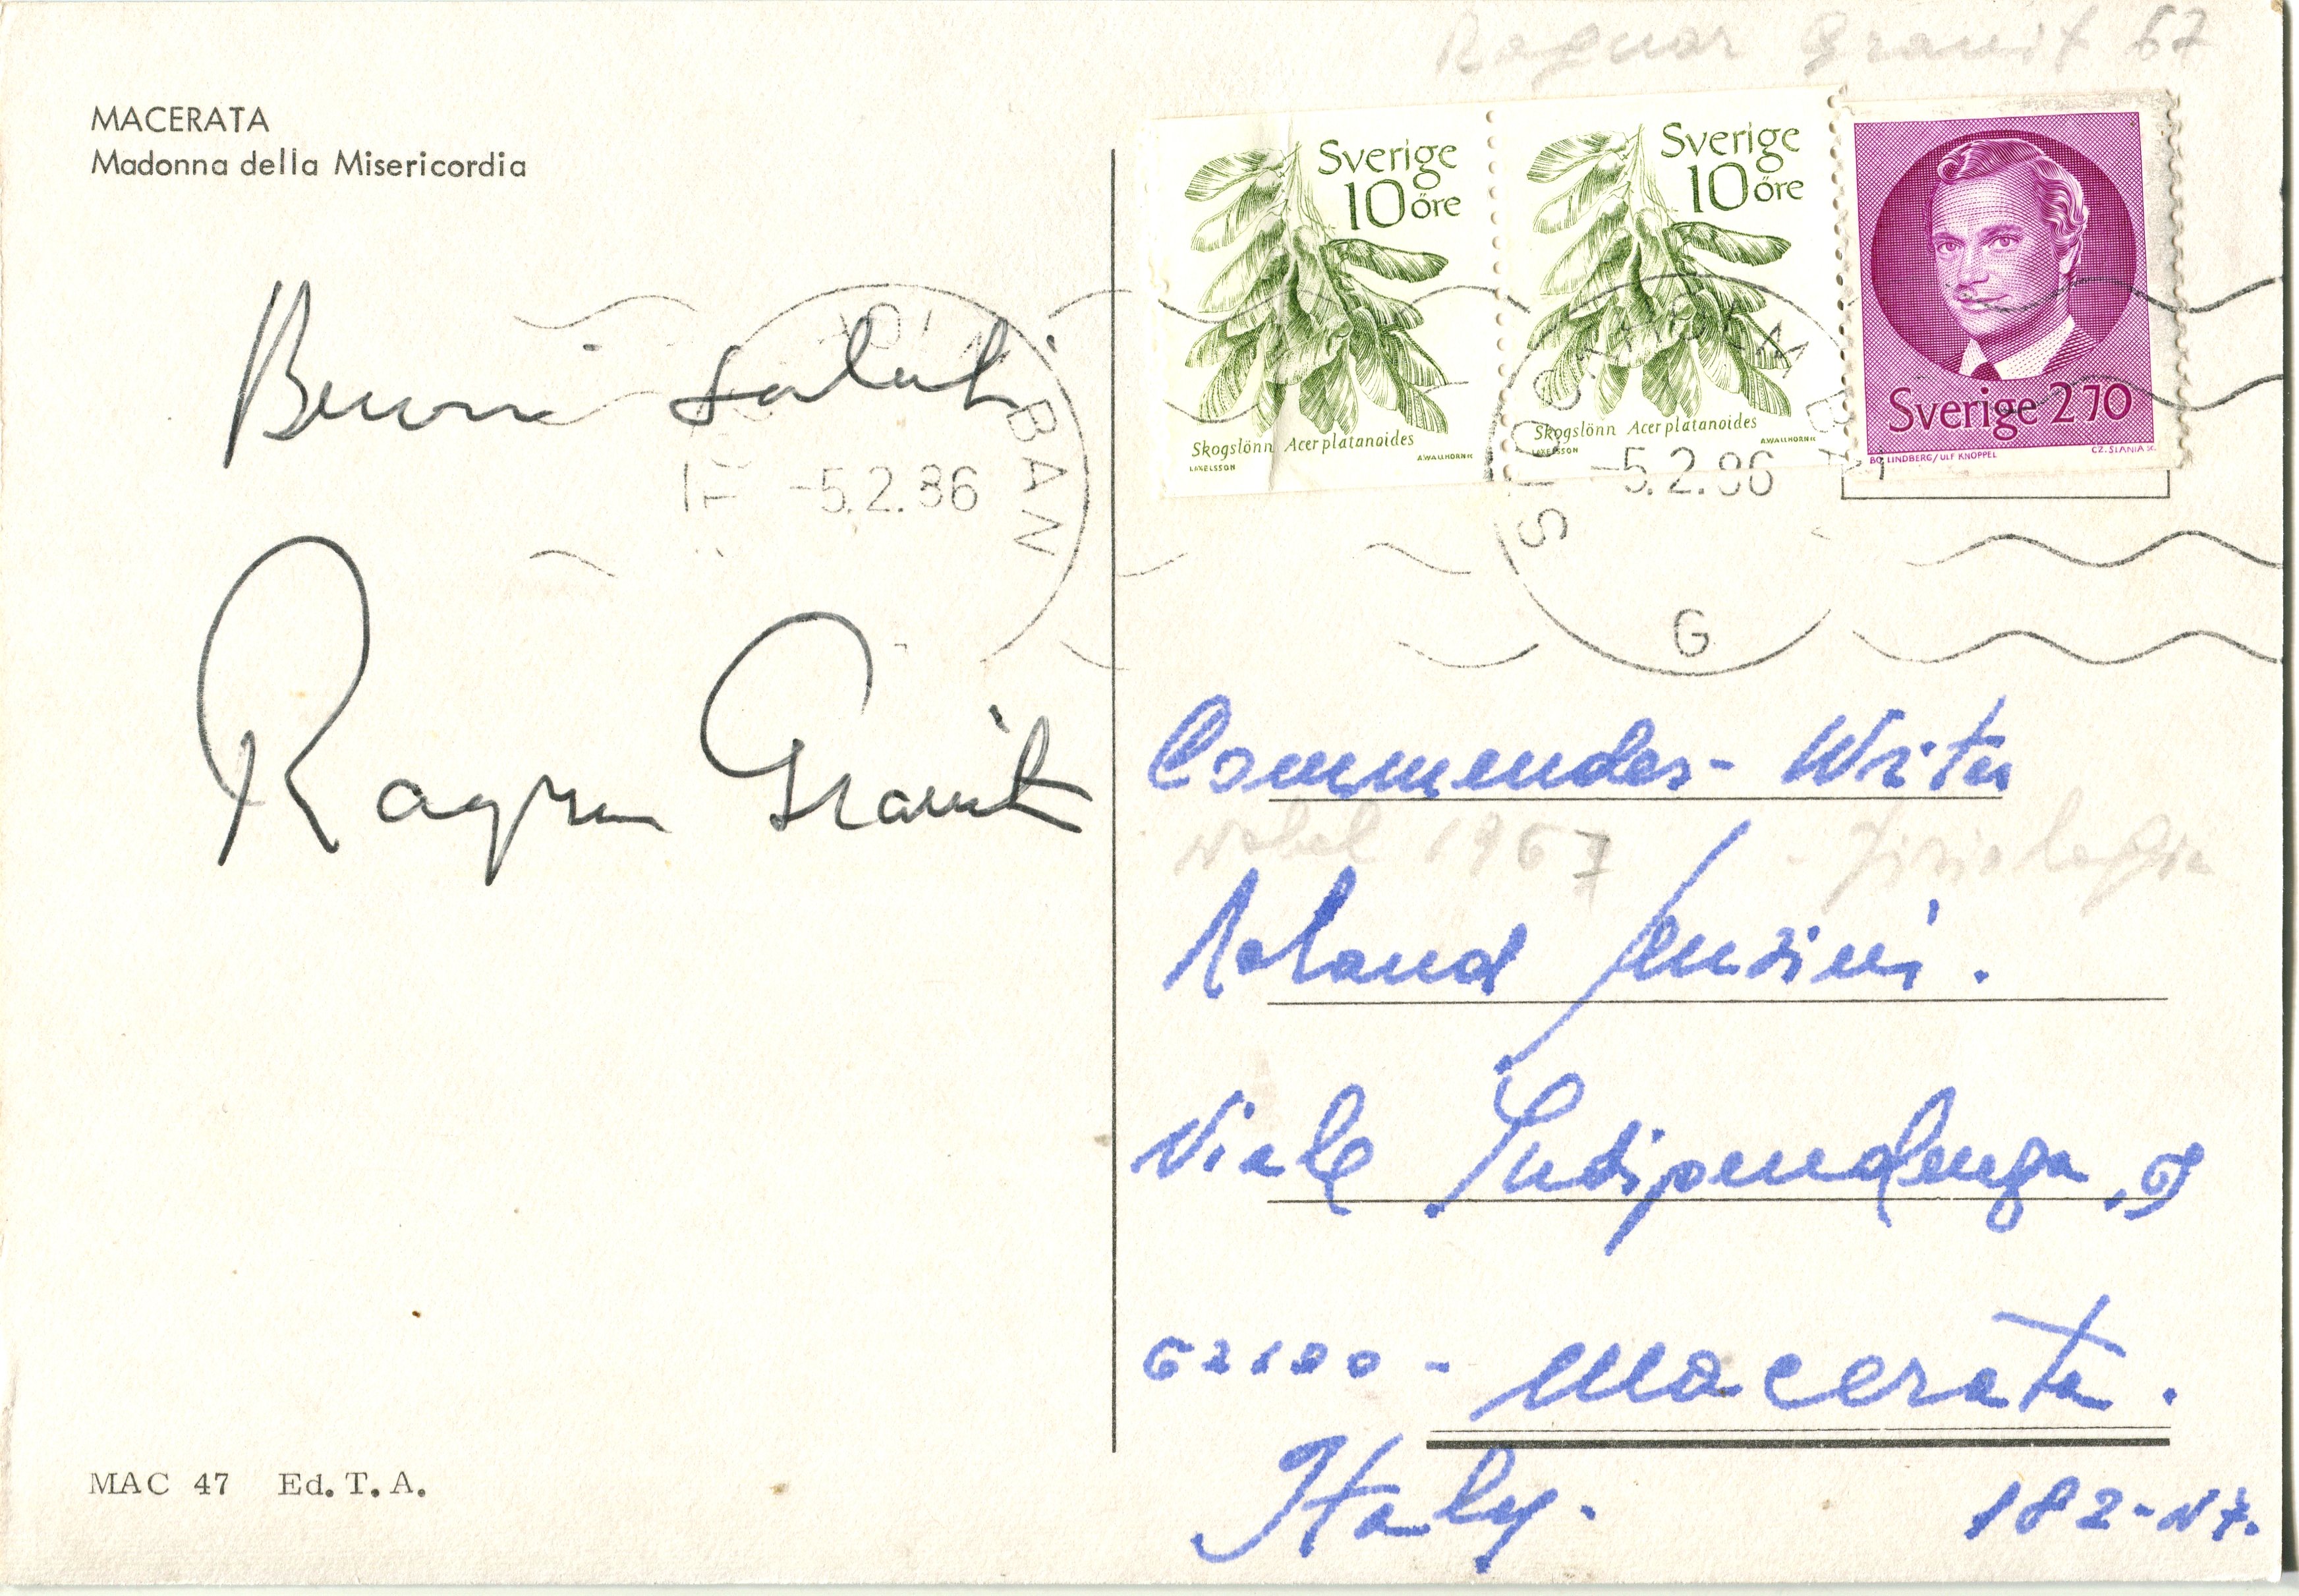 MACERATA
Madonna della Misericordia
Ragnar Granit 67
Sverige
10 öre
Skogslönn Acer platanoides
LAXELSSON
A.WALLHORN
Sverige
10 öre
Skogslönn Acer platanoides
LAXELSSON
A.WALLHORN
Sverige 270
BO LINDBERG/ULF KNOPPEL
CZ.SLANIA SC.
BAN
-5.2.86
STOCKHOLM BAN
-5.2.86
G
Buoni saluti
Ragnar Granit
Commender- Writer
Nobel 1967 - fisiologia
Roland
Viale Indipendenza,
62100 - Macerata.
Italy.
182-N7.
MAC 47 Ed. T. A.